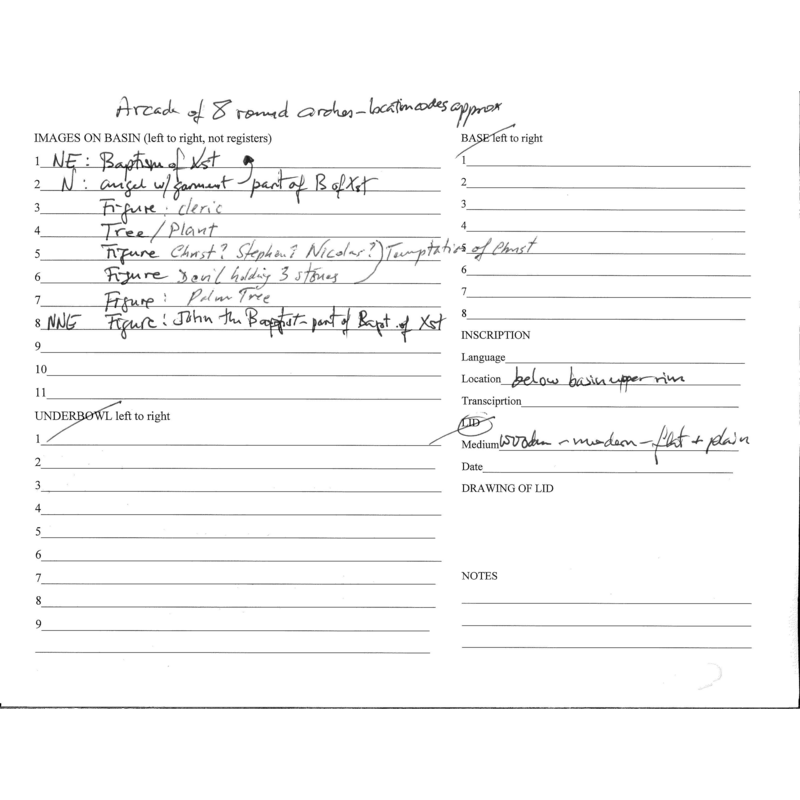 Arcade of 8 round arches - location codes approx
IMAGES ON BASIN (left to right, not registers)
1 NE: Baptism of Xst
2 N: angel w/ garment - part of B of Xst
3 Figure: cleric
4 Tree/Plant
5 Figure Christ? Stephen? Nicolas?) Temptation of Christ
6 Figure Devil holding 3 stones
7 Figure: Palm Tree
8 NNE Figure: John the Baptist - part of Bapt. of Xst
9
10
11
UNDERBOWL left to right
1
2
3
4
5
6
7
8
9
BASE left to right
1
2
3
4
5
6
7
8
INSCRIPTION
Language
Location below basin upper rim
Transciprtion
LID
Medium wooden - modern - flat + plain
Date
DRAWING OF LID
NOTES